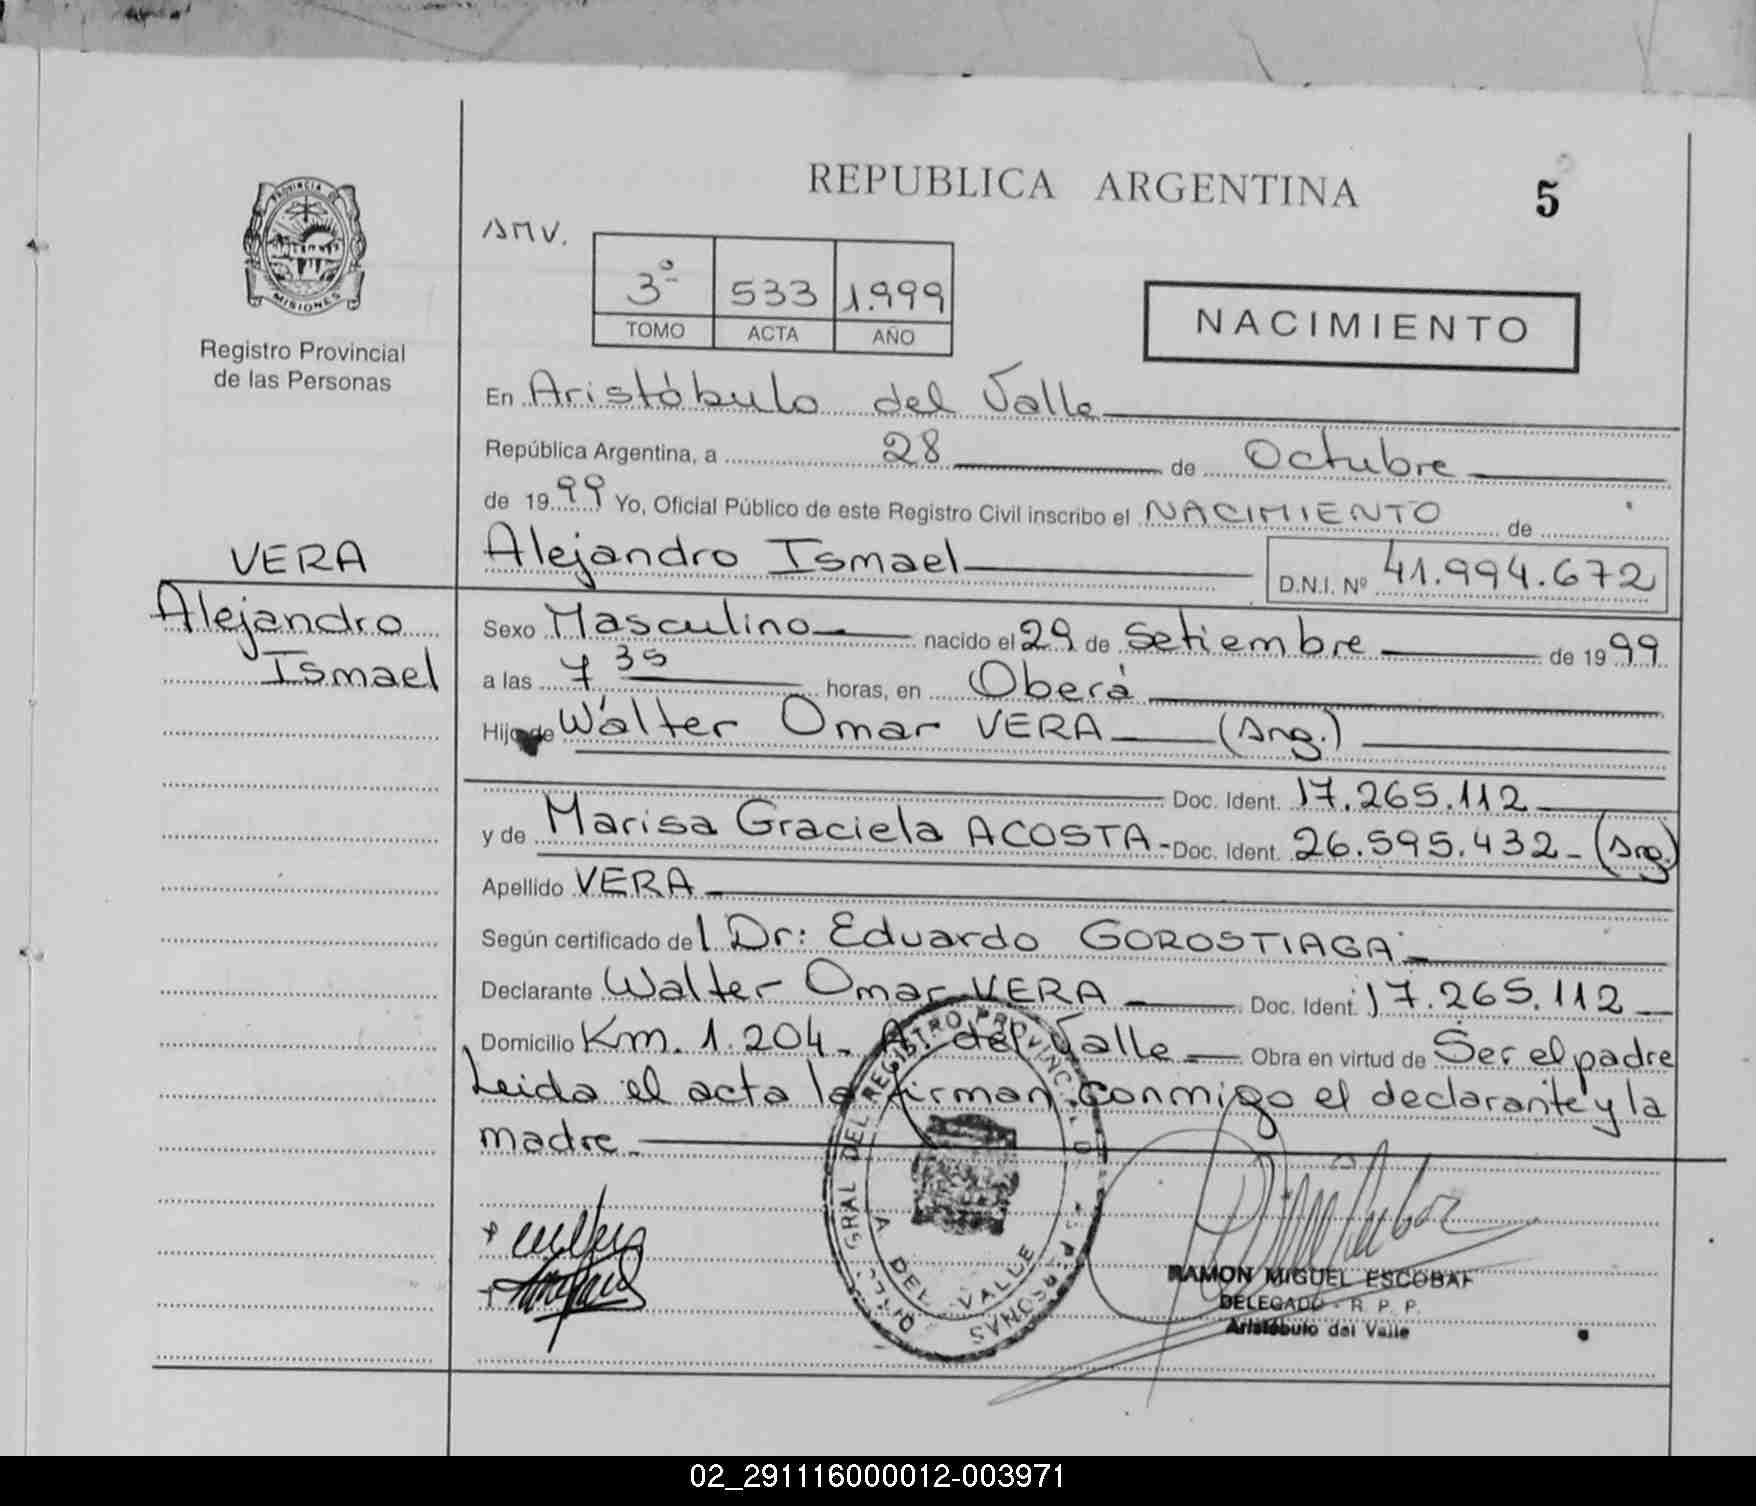 REPUBLICA ARGENTINA
5
PROVINCIA DE
MISIONES
Registro Provincial
de las Personas
AMV.
3º 533 1.999
TOMO ACTA AÑO
NACIMIENTO
En Aristóbulo del Valle
República Argentina, a 28 de Octubre
de 1999 Yo, Oficial Público de este Registro Civil inscribo el NACIMIENTO de
VERA
Alejandro Ismael D.N.I. Nº 41.994.672
Alejandro
Ismael
Sexo Masculino nacido el 29 de Setiembre de 1999
a las 7 35 horas, en Oberá
Hijo de Wálter Omar VERA (Arg.)
Doc. Ident. 17.265.112
y de Marisa Graciela ACOSTA - Doc. Ident. 26.595.432 - (Arg.)
Apellido VERA
Según certificado del Dr: Eduardo GOROSTIAGA
Declarante Walter Omar VERA Doc. Ident. 17.265.112
Domicilio Km. 1.204 - A. del Valle Obra en virtud de Ser el padre
Leida el acta la firman conmigo el declarante y la
madre.
GRAL DEL REGISTRO PROVINCIAL PERSONAS
A DEL VALLE
RAMON MIGUEL ESCOBAR
DELEGADO - R. P. P.
Aristóbulo del Valle
02_291116000012-003971